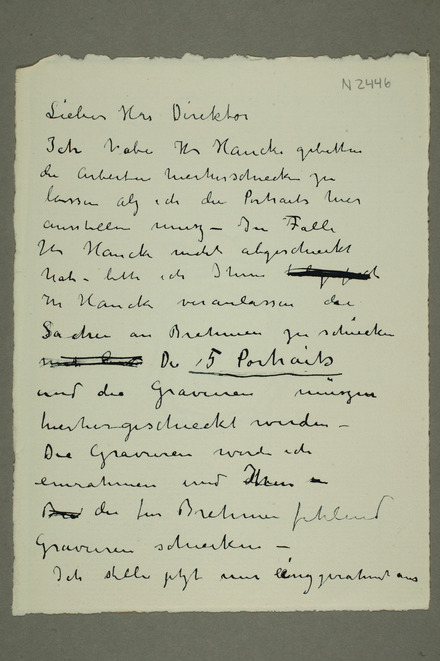 N 2446
Lieber Hrr Direktor
Ich habe Hr Hancke gebetten
die Arbeiten hierherschicken zu
lassen als ich die Portraits hier
ausstellen musz – Im Falle
Hr Hancke nicht abgeschickt
hat – bitte ich Ihnen
Hr Hancke veranlassen die
Sachen an Brehmen zu schicken
Die 5 Portraits
und die Gravuren müszen
hierhergeschieckt werden –
Die Gravuren werde ich
einrahmen und Ihnen
die fur Brehmen fehlend
Gravuren schicken –
Ich stelle jetzt nur eingerahmt aus